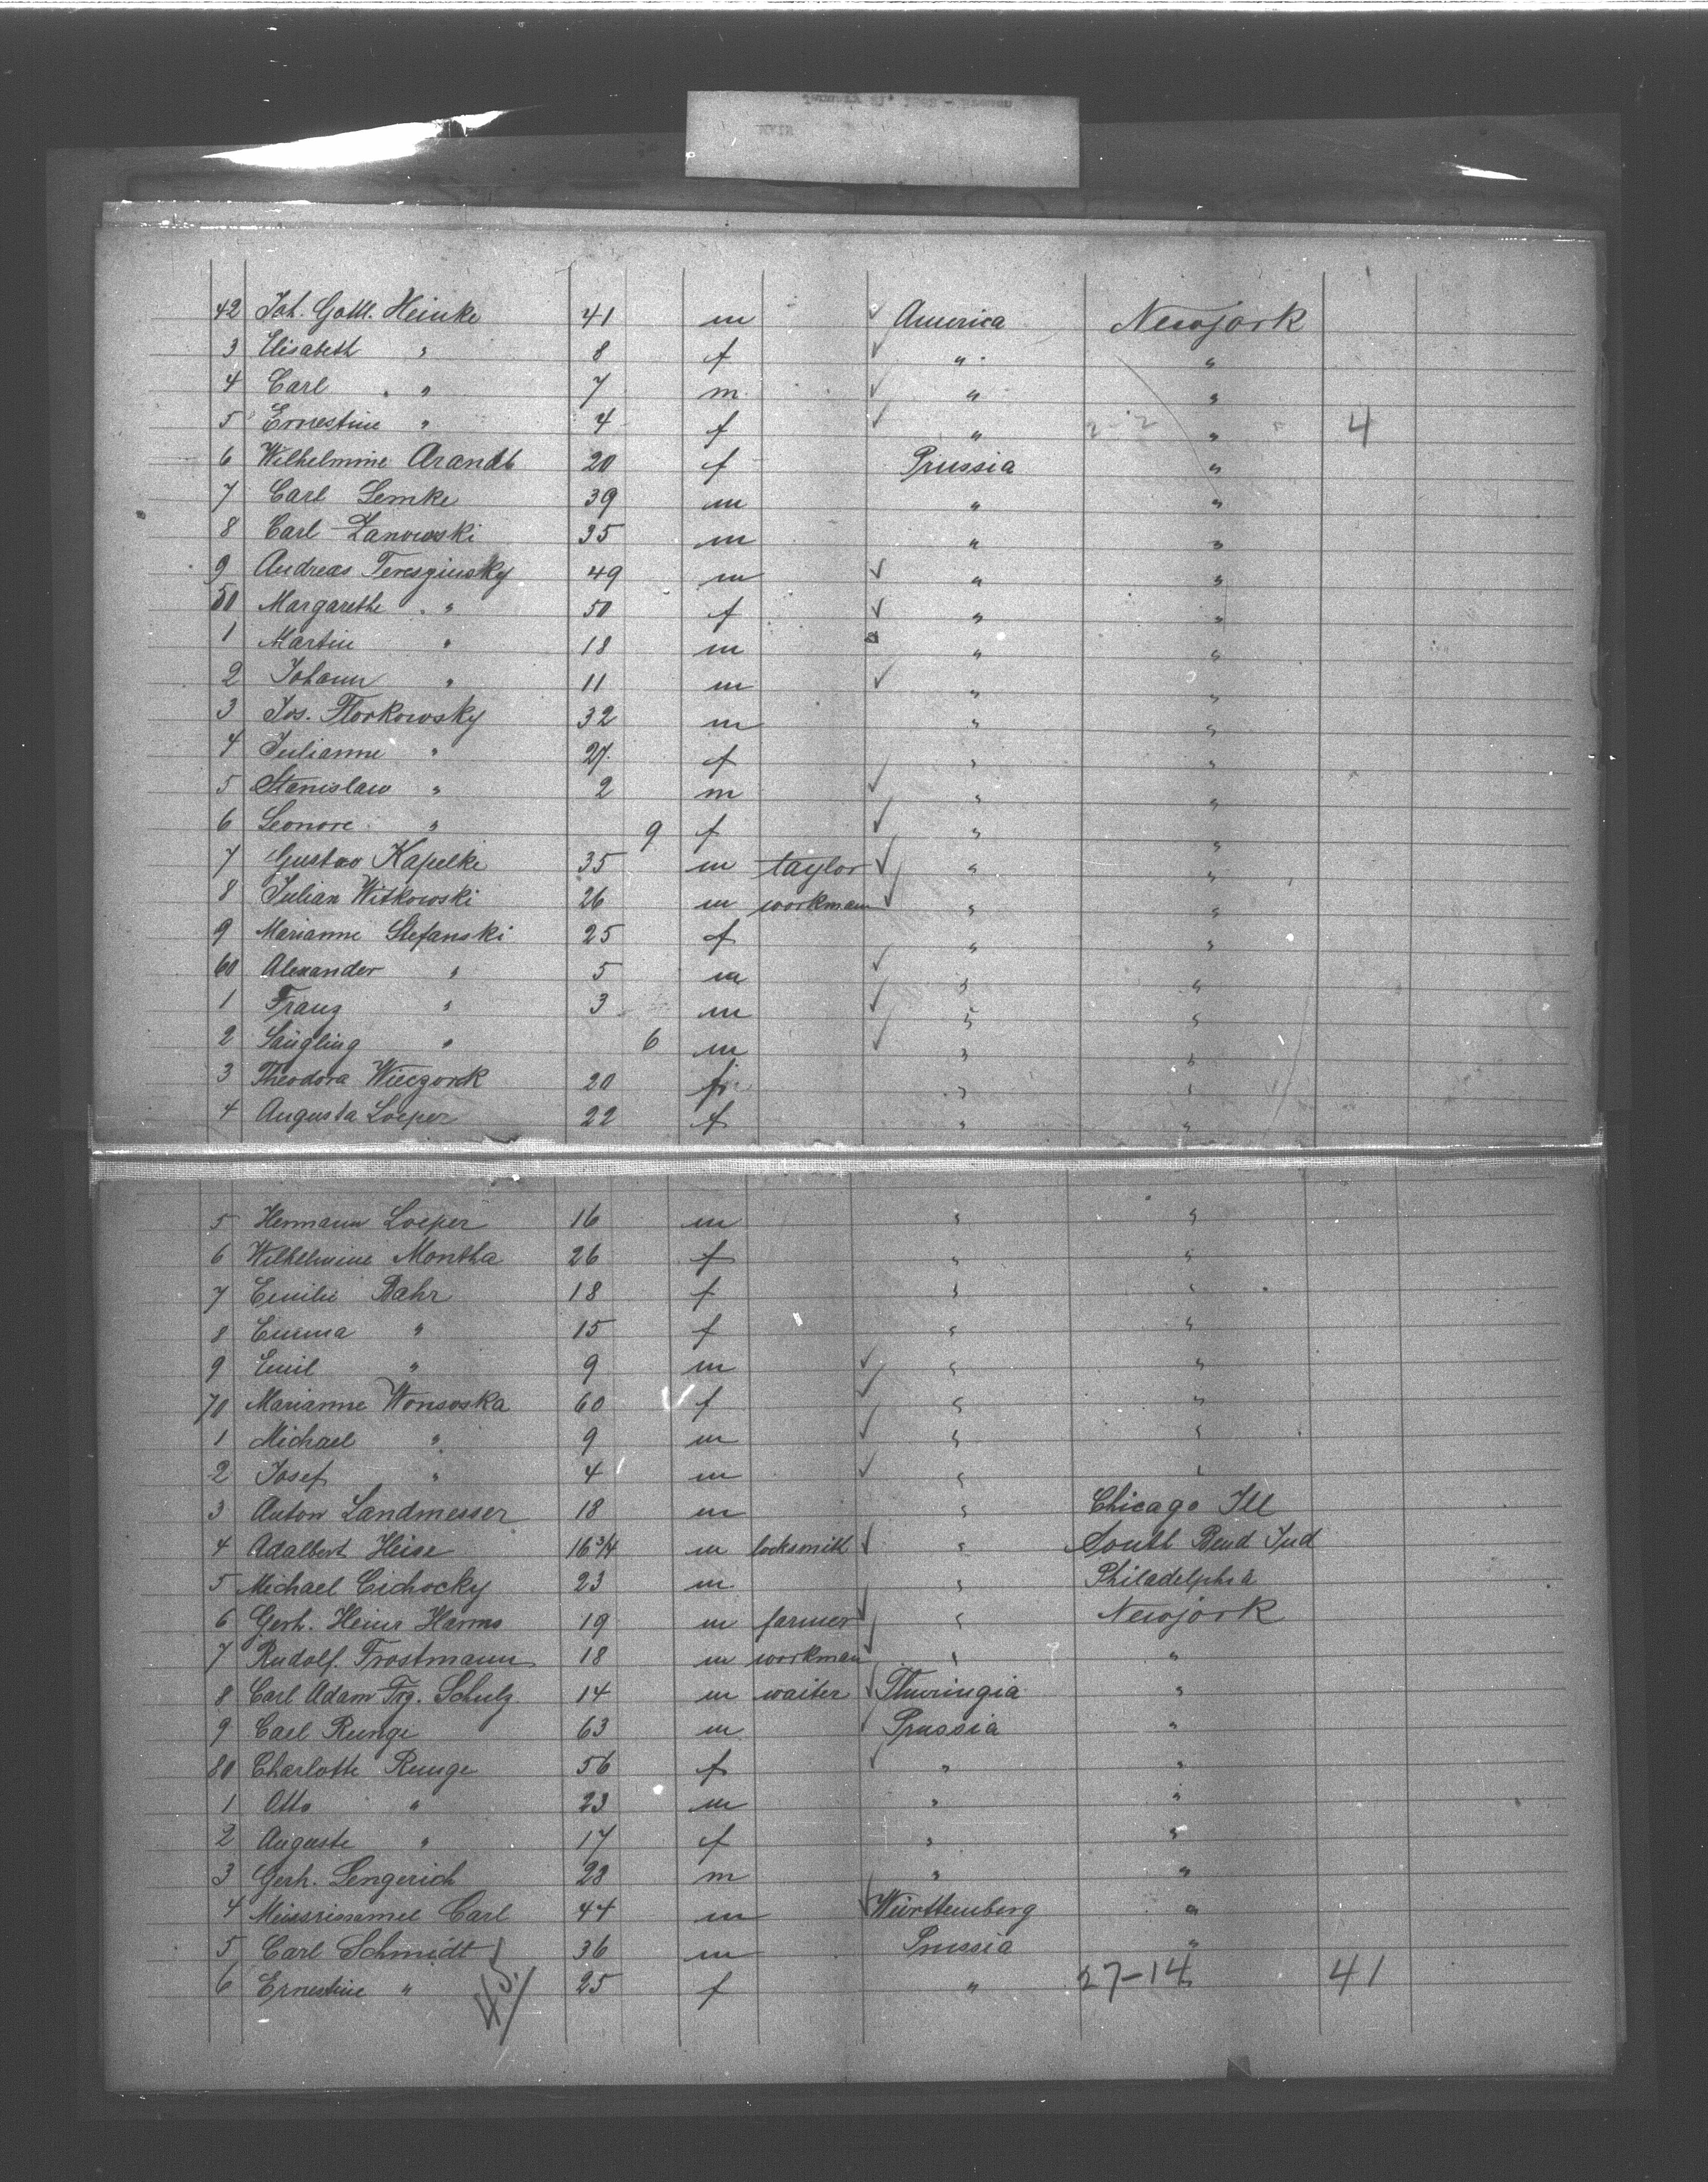 42 Joh. Gottl. Heinke 41 m America Newjork
3 Elisabeth " 8 f " "
4 Carl " 7 m " "
5 Ernestine " 4 f " 2-2 " 4
6 Wilhelmine Arandt 20 f Prussia "
7 Carl Lemke 39 m " "
8 Carl Zanowski 35 m " "
9 Andreas Tereszinsky 49 m " "
50 Margarethe " 50 f " "
1 Martin " 18 m " "
2 Johann " 11 m " "
3 Jos. Florkowsky 32 m " "
4 Julianne " 27 f " "
5 Stanislaw " 2 m " "
6 Leonore " 9 f " "
7 Gustav Kapelke 35 m taylor " "
8 Julian Witkowski 26 m workman " "
9 Marianne Stefanski 25 f " "
60 Alexander " 5 m " "
1 Franz " 3 m " "
2 Säugling " 6 m " "
3 Theodora Wieczorek 20 f " "
4 Augusta Loeper 22 f " "
5 Hermann Loeper 16 m " "
6 Wilhelmine Montha 26 f " "
7 Emilie Bahr 18 f " "
8 Emma " 15 f " "
9 Emil " 9 m " "
70 Marianne Wonsoska 60 f " "
1 Michael " 9 m " "
2 Josef " 4 m " "
3 Anton Landmesser 18 m " Chicago Ill
4 Adalbert Heise 16 3/4 m locksmith " South Bend Ind
5 Michael Cichocky 23 m " Philadelphia
6 Gerh. Heinr Harms 19 m farmer " Newjork
7 Rudolf Trostmann 18 m workman " "
8 Carl Adam Frg. Schulz 14 m waiter Thuringia "
9 Carl Runge 63 m Prussia "
80 Charlotte Runge 56 f " "
1 Otto " 23 m " "
2 Auguste " 17 f " "
3 Gerh. Lengerich 28 m " "
4 Carl 44 m Württemberg "
5 Carl Schmidt 36 m Prussia "
6 Ernestine " 45 25 f " 27-14 " 41